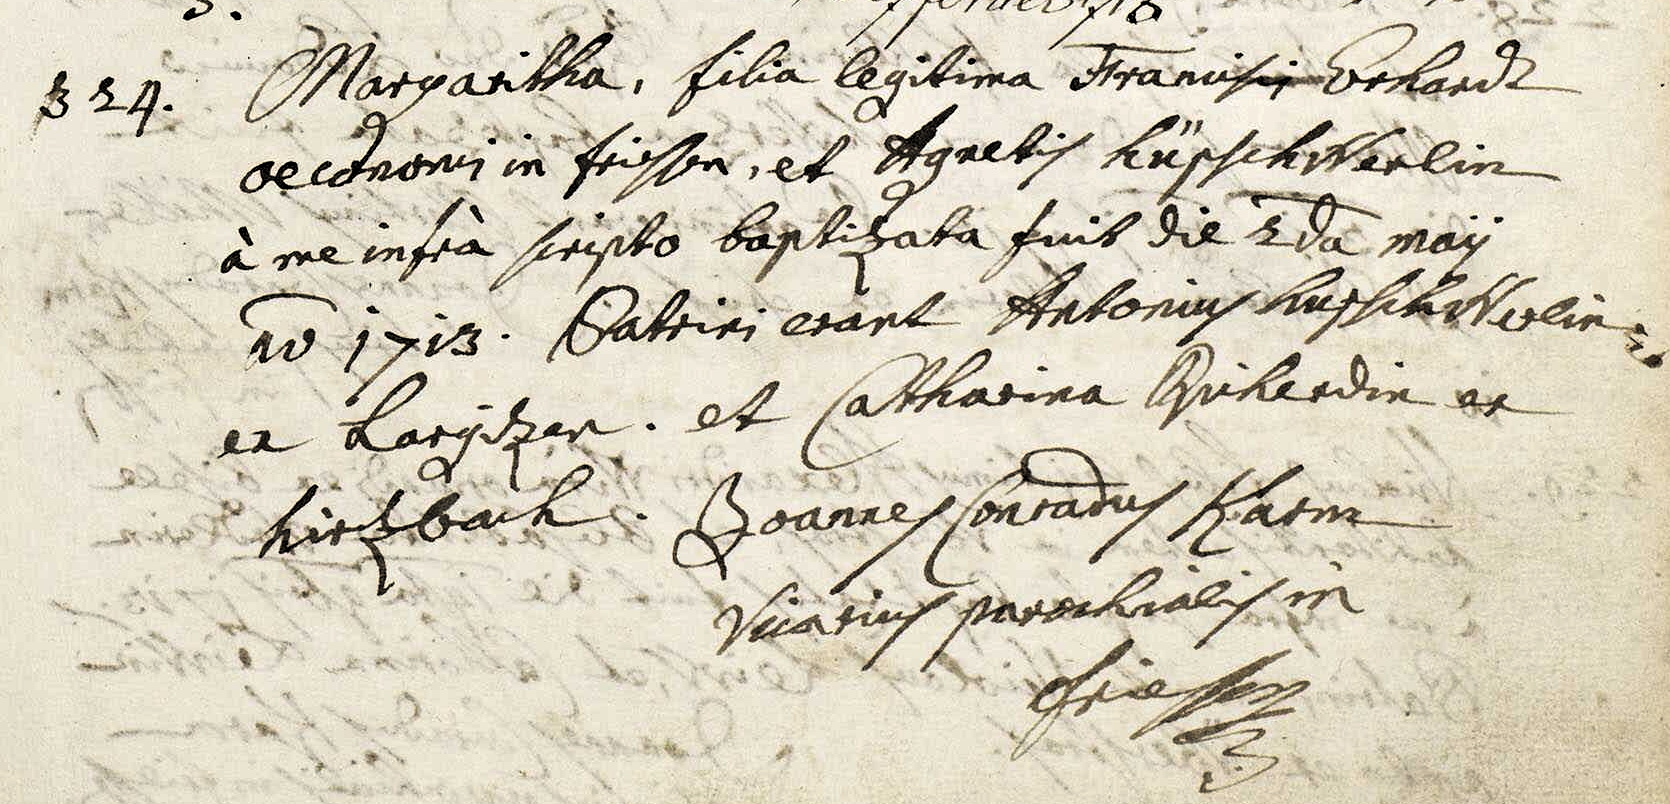 324. Margaritha, filia legitima Francisci Erhardt
oeconomi in friessen, et Agnetis hüpschWerlin
à me infrà scripto baptizata fuit die 2da maÿ
ao 1713. Patrini erant Antonius hupschWerlin
ex Largitzen. et Catharina Richerdin ex
hirtzbach. Joannes Conradus Karm
Vicarius parochialis in
friessen